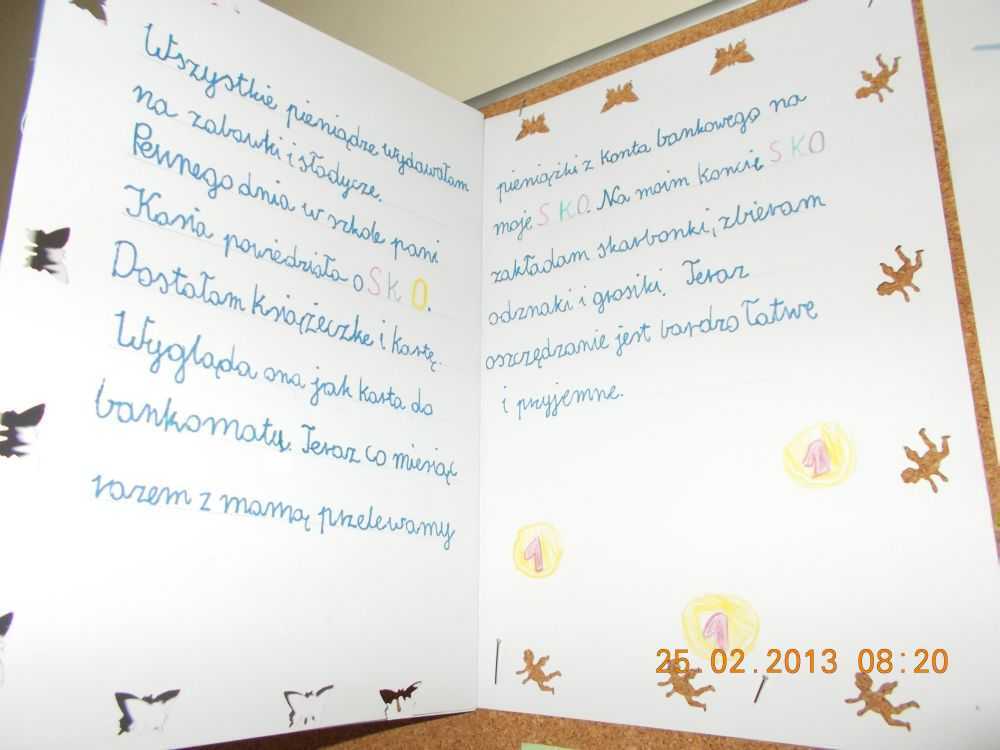 Wszystkie pieniądze wydawałam
na zabawki i słodycze.
Pewnego dnia w szkole pani
Kasia powiedziała o SKO.
Dostałam książeczkę i kartę.
Wygląda ona jak karta do
bankomatu. Teraz co miesiąc
razem z mamą przelewamy
pieniążki z konta bankowego na
moje SKO. Na moim koncie SKO
zakładam skarbonki, zbieram
odznaki i grosiki. Teraz
oszczędzanie jest bardzo łatwe
i przyjemne.
1
1
1
25.02.2013 08:20